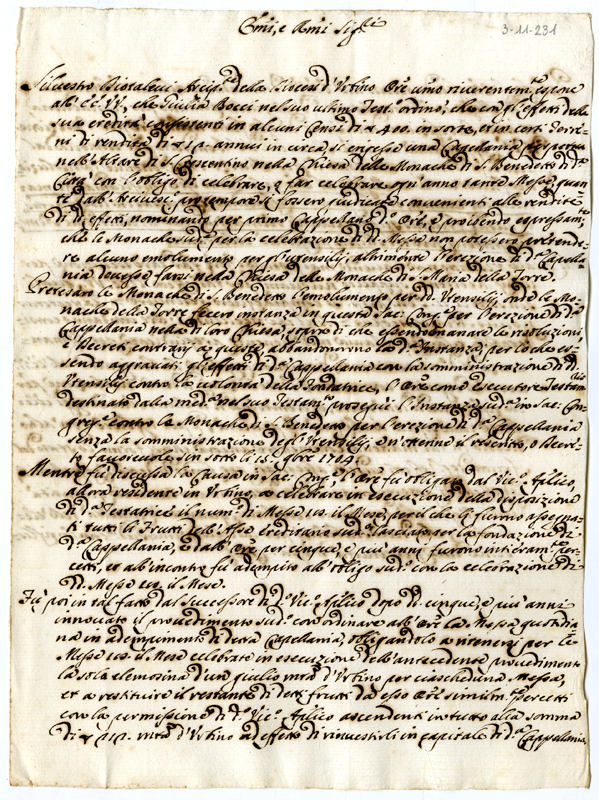 Emi, e Rmi Sigri
3-11-231
Silvestro Arcipte della Diocesi d'Urbino Ore umo riverentemte espone
all' EE. VV., che Giulia Bocci nel suo ultimo Testo ordinò, che con gl'effetti della
sua eredità consistenti in alcuni Censi di 400. in sorte, et in certi Terre-
ni di rendita di annui in circa si ergesse una Cappellania perpetua
nell'Altare di S. nella Chiesa delle Monache di S. Benedetto di da
Città con l'obligo di celebrare, e far celebrare ogn'anno tante Messe, quan-
te dall' pro tempore si fossero giudicate convenienti alle rendite
di di effetti, nominando per primo Cappellano do Ore, e proibendo espressamte
che le Monache sude per la celebrazione di de Messe non potessero pretende-
re alcuno emolumento per gl'utensilij, altrimente l'erezione di da Cappella-
nia dovesse farsi nella Chiesa delle Monache di S. Maria della Torre.
Pretesero le Monache di S. Benedetto l'emolumento per dd. Utensilij, onde le Mo-
nache della Torre fecero instanza in questa Sac: Congne per l'erezione di da
Cappellania nella di loro Chiesa, sopra di che essendo emanate le resoluzioni,
e Decreti contrarij a queste, abbandonorno la da Instanza; per lo che es-
sendo aggravati gl'effetti di da Cappellania con la somministrazione di di
Utensilij contro la volontà della Fondatrice, l'Ore come esecutore Testamrio
destinato dalla medma nel suo Testamto proseguì l'Instanza suda in Sac: Con-
greg: contro le Monache di S. Benedetto per l'erezione di da Cappellania
senza la somministrazione degl'Utensilij, e n'ottenne il rescritto, o Decre-
to favorevole sin sotto li 15. 9bre 1704
Mentre fù discussa la Causa in Sac: Congne, l'Ore fù obligato dal Vico Aplico,
allora residente in Urbino, a celebrare in esecuzione della disposizione
di da Testatrice il numo di Messe il Mese, per il che li furono assegna-
ti tutti li Frutti dell'Asse ereditario sudo lasciato per la fondazione di
da Cappellania, e dall'Ore per cinque, e più anni furono intieramte per-
cetti, et all'incontro fù adempito all'obligo sudo con la celebrazione di
dd. Messe il Mese.
Fù poi in tal fatto dal Successore di do Vico Aplico dopo di cinque, e più anni
innovato il provedimento sudo con ordinare all'Ore la Messa quotidia-
na in adempimento di detta Cappellania, obligandolo a ritenersi per le
Messe il Mese celebrate in esecuzione dell'antecedente provedimento
la sola elemosina d'un giulio mta d'Urbino per ciascheduna Messa,
et a restituire il restante di detti frutti da esso Ore similmte percetti
con la permissione di do Vico Aplico ascendenti in tutto alla somma
di mta d'Urbino ad effetto di rinvestirli in capitale di da Cappellania,